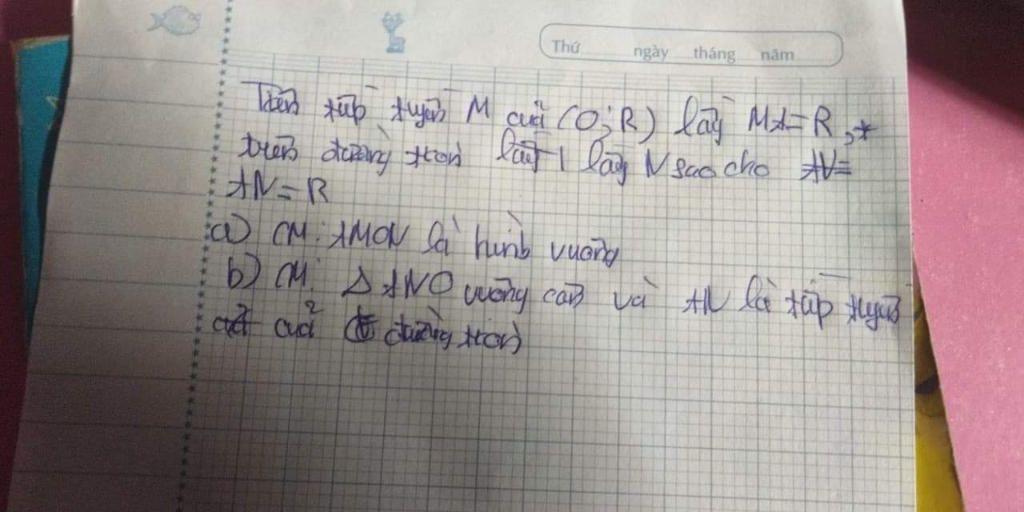 Thứ ngày tháng năm
Trên tiếp tuyến M của (O;R) lấy MA=R,
trên đường tròn lấy N sao cho
AN=R
a) CM: AMON là hình vuông
b) CM: Δ ANO vuông cân và AN là tiếp tuyến
của đường tròn